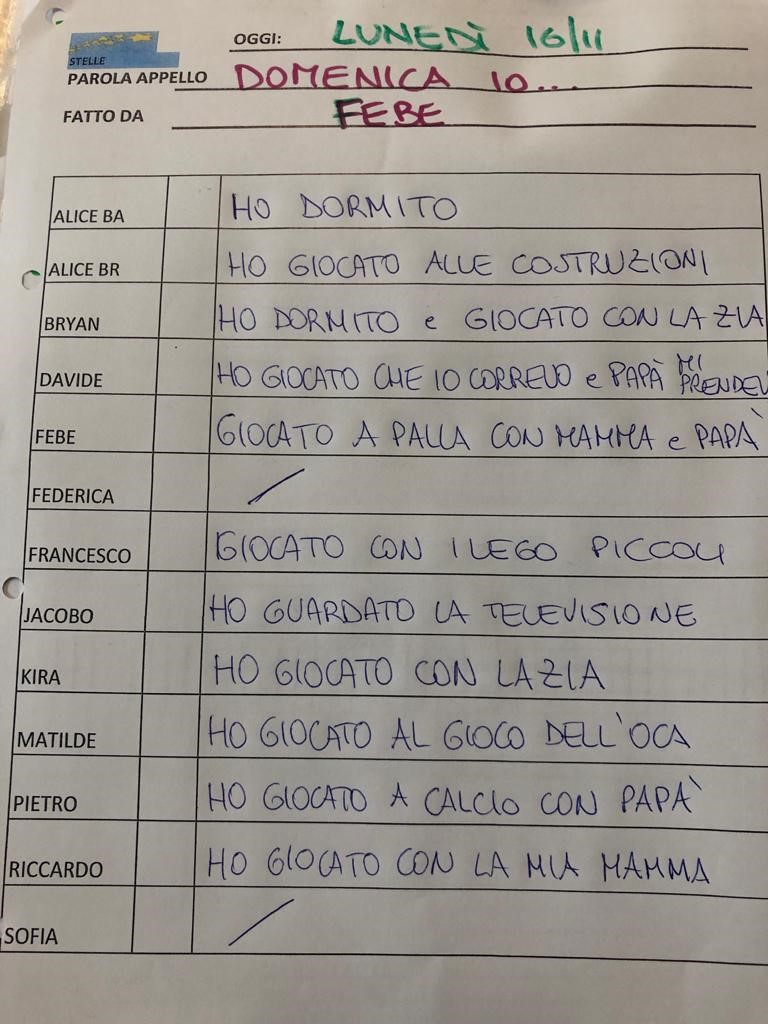 OGGI: LUNEDÌ 16/11
STELLE
PAROLA APPELLO DOMENICA IO...
FATTO DA FEBE
ALICE BA HO DORMITO
ALICE BR HO GIOCATO ALLE COSTRUZIONI
BRYAN HO DORMITO e GIOCATO CON LA ZIA
DAVIDE HO GIOCATO CHE IO CORREVO e PAPÀ MI PRENDEV
FEBE GIOCATO A PALLA CON MAMMA e PAPÀ
FEDERICA /
FRANCESCO GIOCATO CON I LEGO PICCOLI
JACOBO HO GUARDATO LA TELEVISIONE
KIRA HO GIOCATO CON LA ZIA
MATILDE HO GIOCATO AL GIOCO DELL'OCA
PIETRO HO GIOCATO A CALCIO CON PAPÀ
RICCARDO HO GIOCATO CON LA MIA MAMMA
SOFIA /